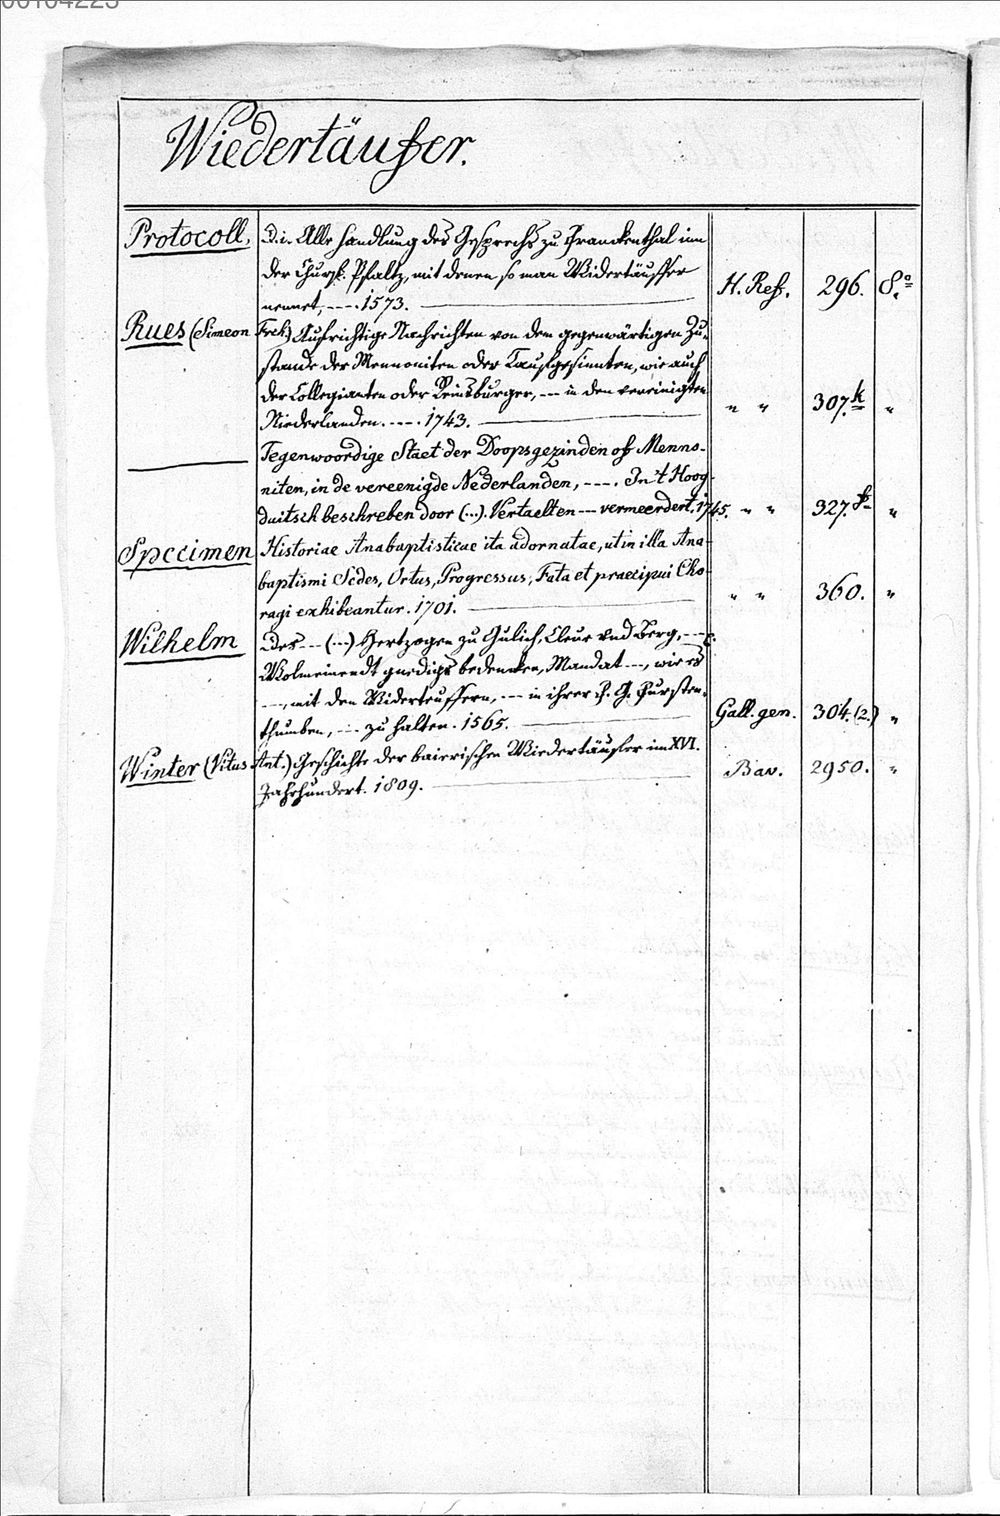 Wiedertäufer.
Protocoll, d. i. Alle Handlung des Gesprechs zu Franckenthal inn
der Churf. Pfaltz, mit denen so man Widertäuffer
nennet, ---. 1573. H. Ref. 296. 8.o
Rues (Simeon Frdr.) Aufrichtige Nachrichten von dem gegenwärtigen Zu-
stande der Mennoniten oder Taufgesinnten, wie auch
der Collegianten oder Reinsburger, --- in den vereinigten
Niederlanden. ---. 1743. " " 307.k "
Tegenwoordige Staet der Doopsgezinden of Menno-
niten, in de vereenigde Nederlanden, ---. In 't Hoog-
duitsch beschreben door (...). Vertaelt en --- vermeerdert. 1745. " " 327. "
Specimen Historiae Anabaptisticae ita adornatae, ut in illa Ana-
baptismi Sedes, Ortus, Progressus, Fata et praecipui Cho-
ragi exhibeantur. 1701. " " 360. "
Wilhelm Des -- (...) Hertzogen zu Gulich, Cleve vnd Berg, ---
Wolmeinendt gnedigs bedencken, Mandat ---, wie es
---, mit den Widerteuffern, --- in ihrer F. G. Fursten-
thumben, --- zu halten. 1565. Gall. gen. 304.(2.) "
Winter (Vitus Ant.) Geschichte der baierischen Wiedertäufer im XVI.
Jahrhundert. 1809. Bav. 2950. "